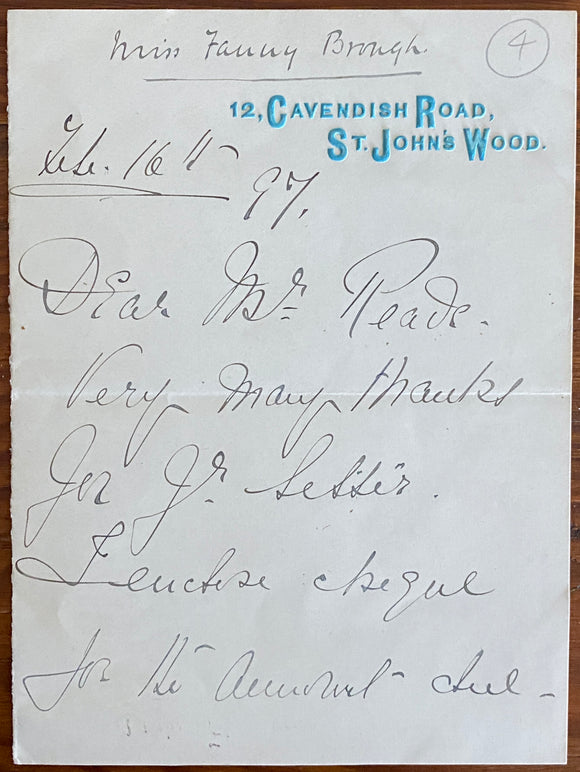 Miss Fanny Brough.
4
12, CAVENDISH ROAD,
ST. JOHN'S WOOD.
Feb. 16th
97.
Dear Mr. Reade.
Very Many thanks
for yr. letter.
I enclose cheque
for the Amount due -